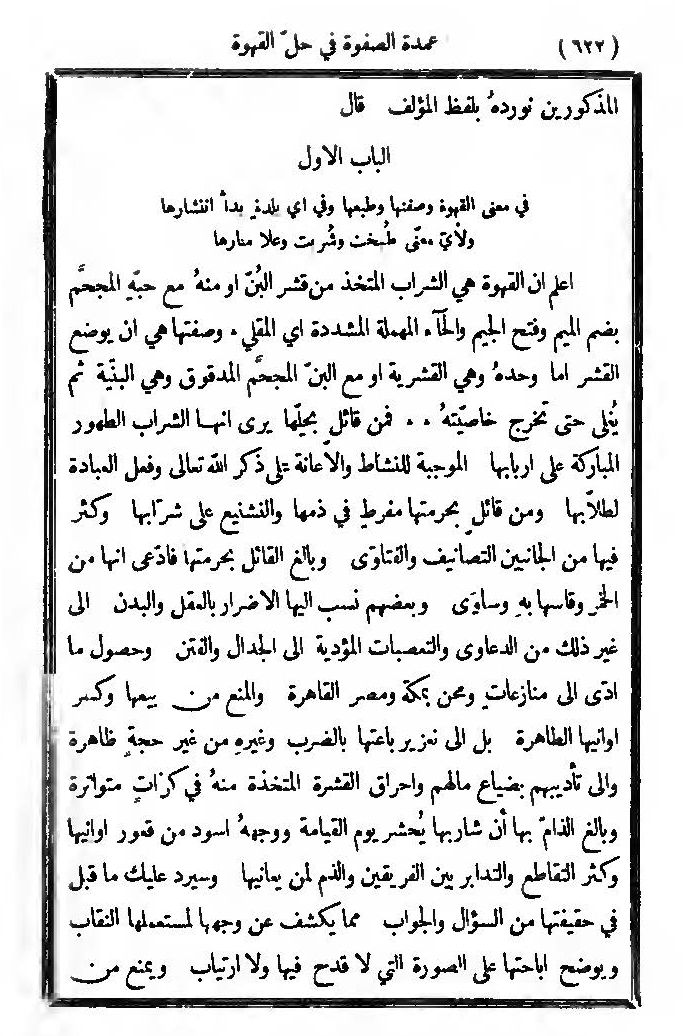 (٦٢٢) عمدة الصفوة في حلّ القهوة
المذكورين نوردهُ بلفظ المؤلف قال
الباب الاول
في معنى القهوة وصفتها وطبعها وفي اي بلدةٍ بدأ انتشارها
ولأيّ معنًى طُبخت وشُربت وعلا منارها
اعلم ان القهوة هي الشراب المتخذ من قشر البُنّ او منهُ مع حبّهِ المجحَّم
بضم الميم وفتح الجيم والحآء المهملة المشددة اي المقلي ٠ وصفتها هي ان يوضع
القشر اما وحدهُ وهي القشرية او مع البنّ المجحَّم المدقوق وهي البنّية ثم
يُغلى حتى تخرج خاصيّتهُ ٠ ٠ فمن قائل بحِلّها يرى انها الشراب الطهور
المباركة على اربابها الموجبة للنشاط والاعانة على ذكر الله تعالى وفعل العبادة
لطلّابها ومن قائلٍ بحرمتها مفرطٍ في ذمها والتشنيع على شرّابها وكثر
فيها من الجانبين التصانيف والفتاوى وبالغ القائل بحرمتها فادّعى انها من
الخمر وقاسها بهِ وساوَى وبعضهم نسب اليها الاضرار بالعقل والبدن الى
غير ذلك من الدعاوى والتعصبات المؤدية الى الجدال والفتن وحصول ما
ادّى الى منازعاتٍ ومحن بمكة ومصر القاهرة والمنع من بيعها وكسر
اوانيها الطاهرة بل الى تعزير باعتها بالضرب وغيرهِ من غير حجةٍ ظاهرة
والى تأديبهم بضياع مالهم واحراق القشرة المتخذة منهُ في كرّاتٍ متواترة
وبالغ الذامّ بها أن شاربها يُحشر يوم القيامة ووجههُ اسود من قعور اوانيها
وكثر التقاطع والتدابر بين الفريقين والذم لمن يعانيها وسيرد عليك ما قيل
في حقيقتها من السؤال والجواب مما يكشف عن وجهها لمستعملها النقاب
ويوضح اباحتها على الصورة التي لا قدح فيها ولا ارتياب ويمنع من